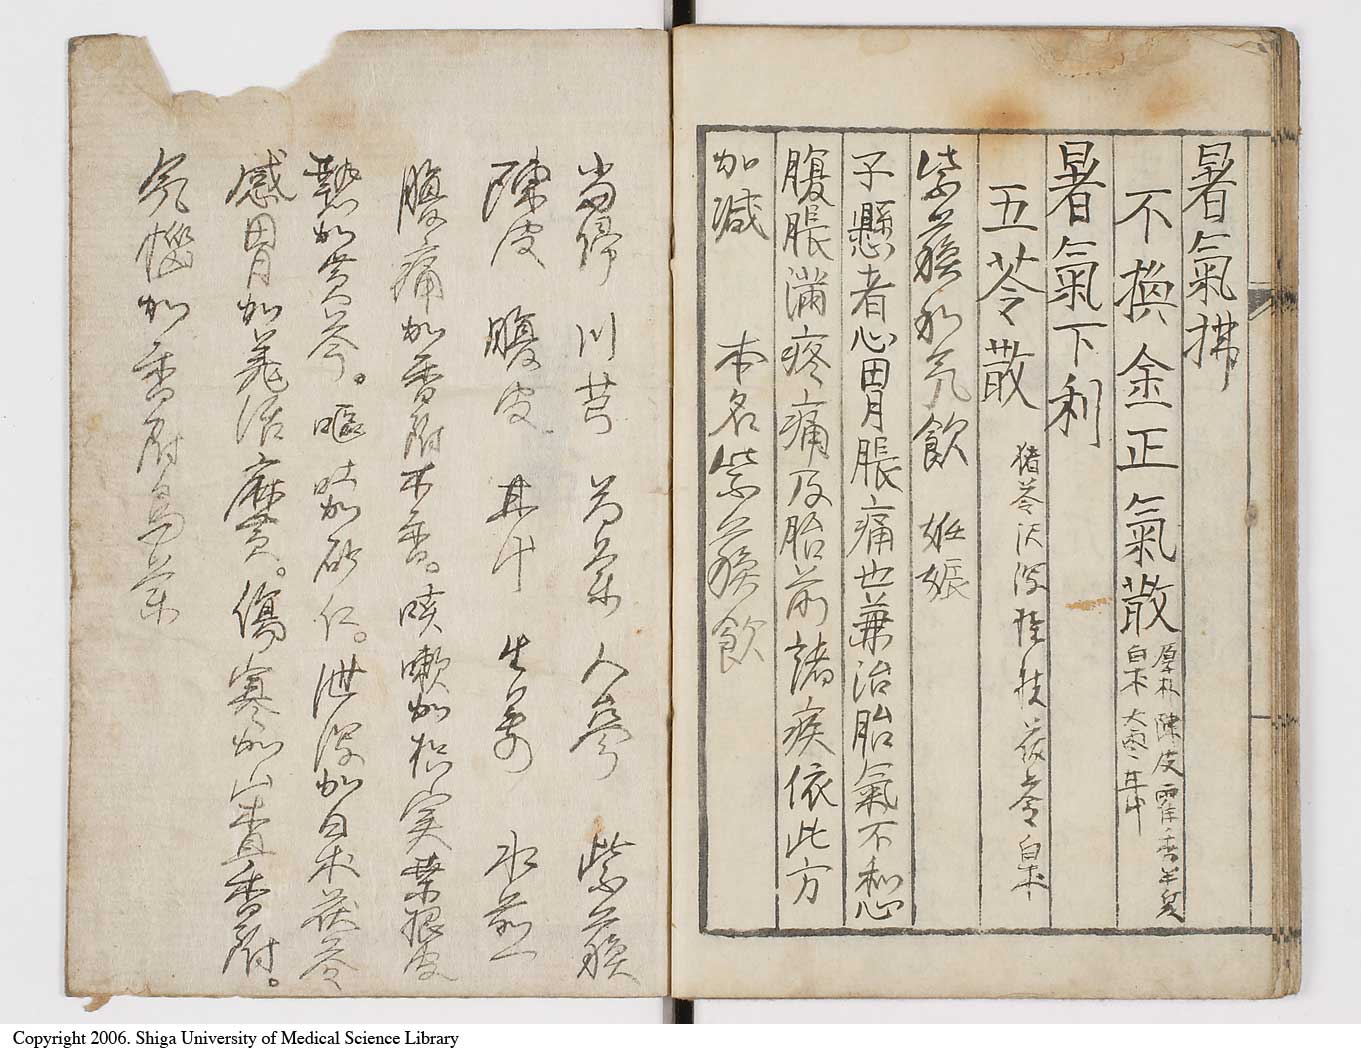 暑氣拂
不換金正氣散 厚朴 陳皮 霍香 半夏
白朮 大棗 甘中
暑氣下利
五苓散 猪苓 沢瀉 桂枝 茯苓 白朮
紫蘓和気飲 妊娠
子懸者心胃脹痛也兼治胎氣不和心
腹脹滿疼痛及胎前諸疾依此方
加減 本名紫蘓飲
当帰 川芎 芍薬 人参 紫蘓
陳皮 腹皮 甘中 生姜 水煎
腹痛加香附木香。咳嗽加枳実桑根皮
熱加黄芩。嘔吐加砂仁。泄瀉加白朮茯苓
感冒加羌活麻黄。傷寒加山査香附。
気惱加香附烏薬
Copyright 2006. Shiga University of Medical Science Library